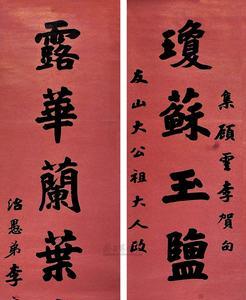 集顧雲李賀句
瓊蘇玉鹽
友山大公祖大人政
露華蘭葉
治愚弟李